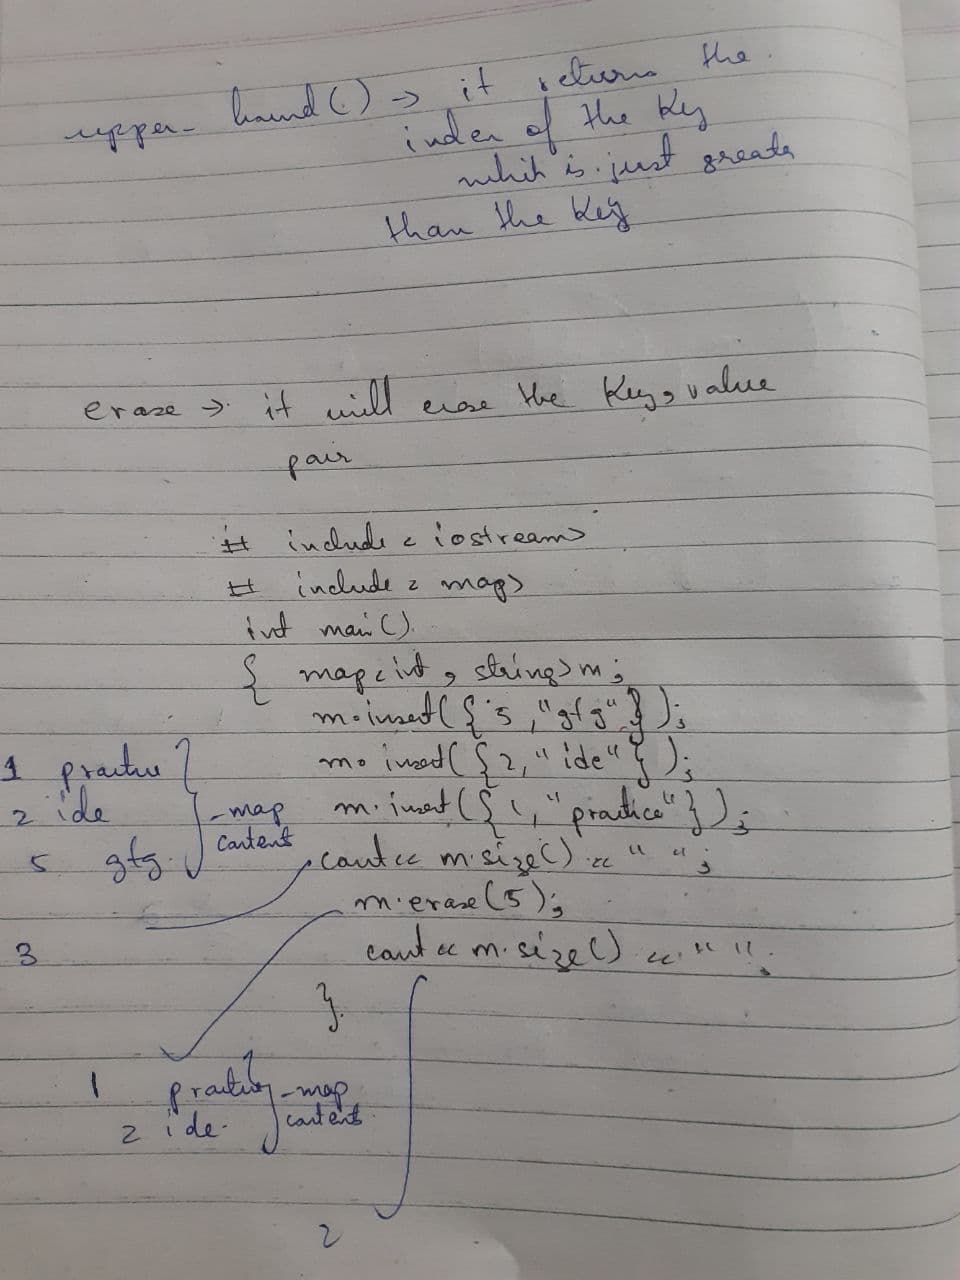 upper_bound() → it returns the
index of the key
which is just greater
than the key
erase → it will erase the key, value
pair
# include < iostream>
# include < map>
int main()
{ map<int, string>m;
m.insert({5,"gfg"});
m.insert({2,"ide"});
m.insert({1,"practice"});
cout<< m.size() << " ";
m.erase(5);
cout << m.size() << " ";
}
1 practice
2 ide
5 gfg
-map
content
3
1 practice
2 ide
-map
content
2